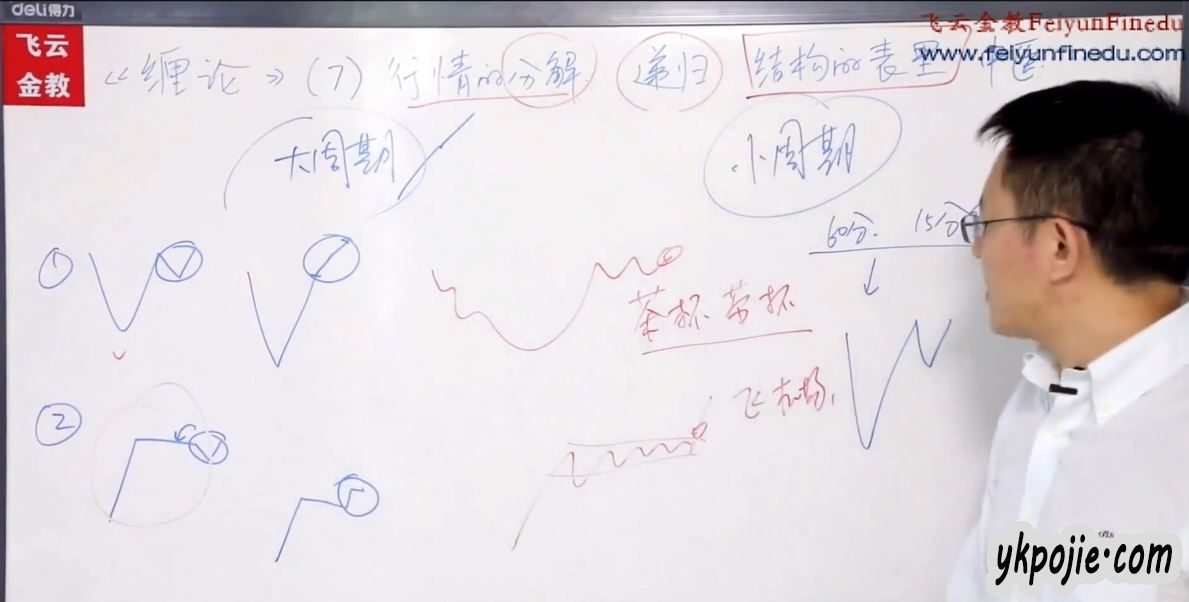 deli得力
飞云金教FeiyunFinedu
www.feiyunfinedu.com
飞云
金教
《缠论》(7) 行情的分解 递归 结构的表里 中医
大周期
小周期
60分. 15分
①
茶杯 带杯
②
飞机场,
ykpojie.com